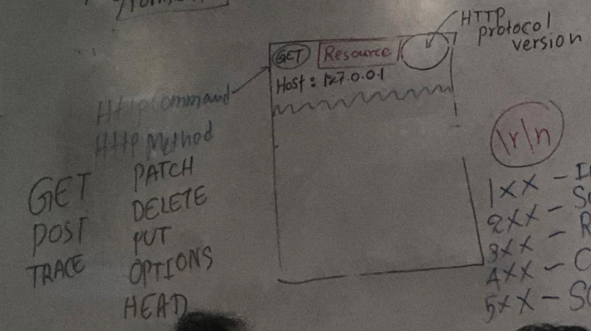 HTTP
protocol
version
GET Resource
Host: 127.0.0.1
HttpCommand
HTTP Method
GET
POST
TRACE
PATCH
DELETE
PUT
OPTIONS
HEAD
\r\n
1xx - I
2xx - S
3xx - R
4xx - C
5xx - S